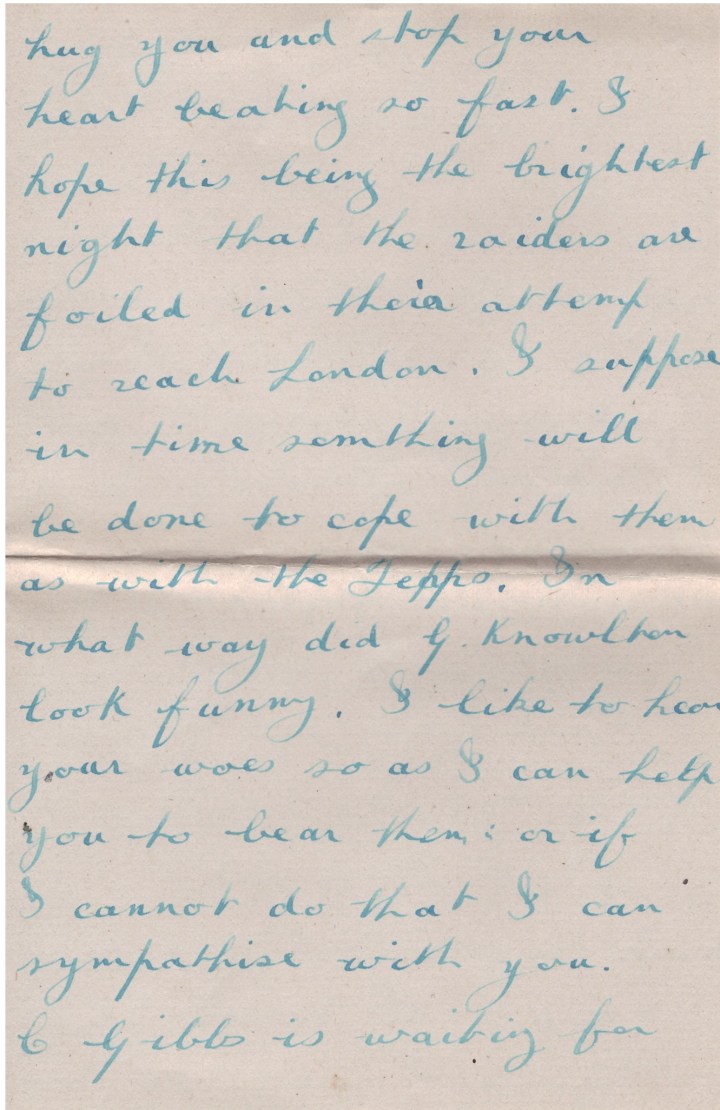 hug you and stop your
heart beating so fast. I
hope this being the brightest
night that the raiders are
foiled in their attemp
to reach London. I suppose
in time somthing will
be done to cope with them
as with the Zepps. In
what way did G. Knowlton
look funny. I like to hear
your woes so as I can help
you to bear them: or if
I cannot do that I can
sympathise with you.
C Gibbs is waiting for